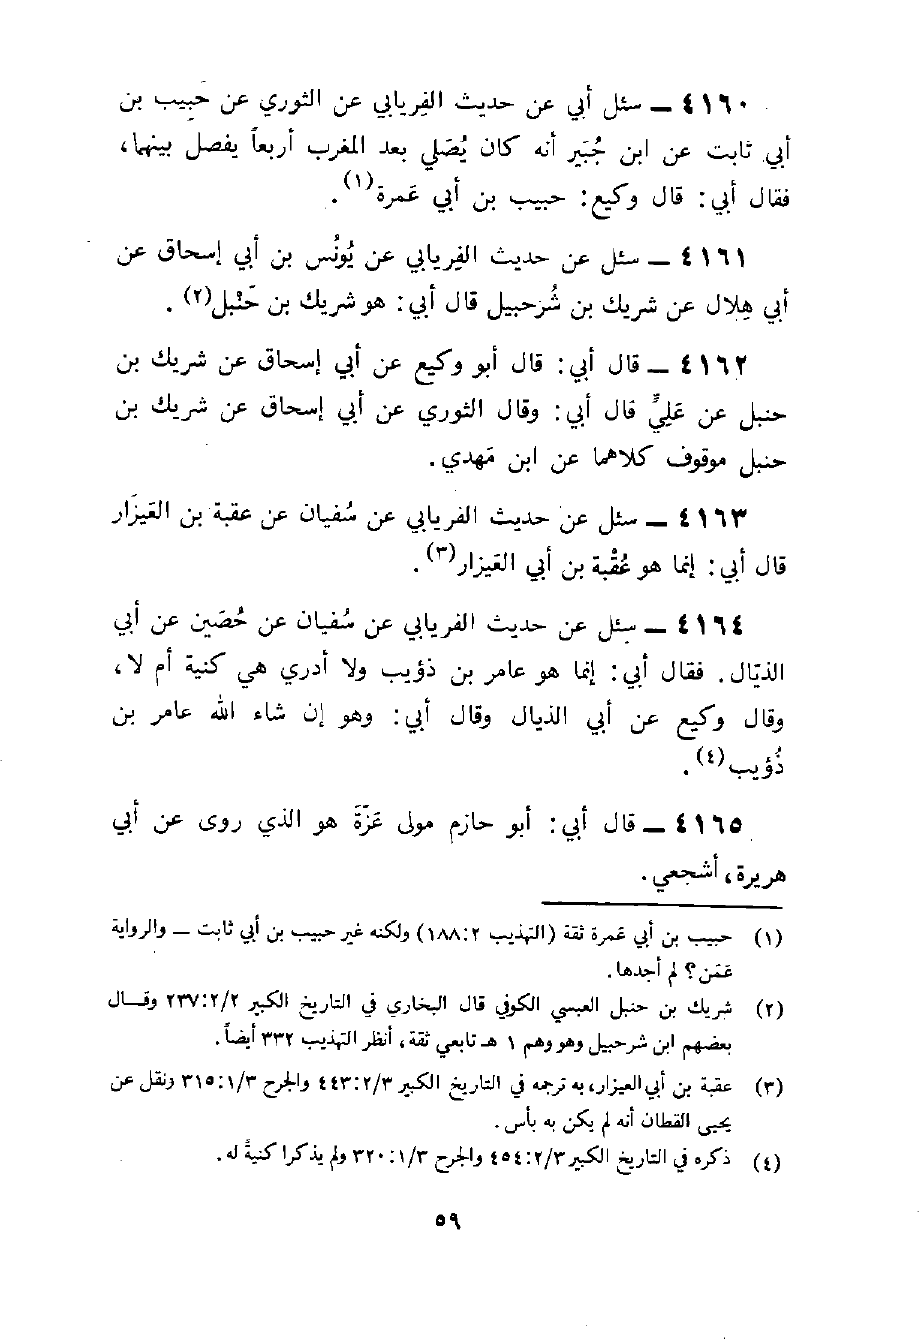 ٤١٦٠ ــ سئل أبي عن حديث الفريابي عن الثوري عن حَبِيب بن
أبي ثابت عن ابن جُبَير أنه كان يُصَلي بعد المغرب أربعاً يفصل بينها،
فقال أبي: قال وكيع: حبيب بن أبي عَمرة(١).
٤١٦١ ــ سئل عن حديث الفِريابي عن يُونُس بن أبي إسحاق عن
أبي هِلال عن شريك بن شُرحبيل قال أبي: هو شريك بن حَنْبل(٢).
٤١٦٢ ــ قال أبي: قال أبو وكيع عن أبي إسحاق عن شريك بن
حنبل عن عَلِيٍّ قال أبي: وقال الثوري عن أبي إسحاق عن شريك بن
حنبل موقوف كلاهما عن ابن مَهدي.
٤١٦٣ ــ سئل عن حديث الفريابي عن سُفيان عن عقبة بن العَيزَار
قال أبي: إنما هو عُقْبة بن أبي العَيزار(٣).
٤١٦٤ ــ سئل عن حديث الفريابي عن سُفيان عن حُصَين عن أبي
الذيّال. فقال أبي: إنما هو عامر بن ذؤيب ولا أدري هي كنية أم لا،
وقال وكيع عن أبي الذيال وقال أبي: وهو إن شاء الله عامر بن
ذُؤيب(٤).
٤١٦٥ ــ قال أبي: أبو حازم مولى عَزَّةَ هو الذي روى عن أبي
هريرة، أشجعي.
(١) حبيب بن أبي عَمرة ثقة (التهذيب ١٨٨:٢) ولكنه غير حبيب بن أبي ثابت ــ والرواية
عَمّن؟ لم أجدها.
(٢) شريك بن حنبل العبسي الكوفي قال البخاري في التاريخ الكبير ٢٣٧:٢/٢ وقال
بعضهم ابن شرحبيل وهو وهم ١ هـ تابعي ثقة، أنظر التهذيب ٣٣٢ أيضاً.
(٣) عقبة بن أبي العيزار، به ترجمه في التاريخ الكبير ٤٤٣:٢/٣ والجرح ٣١٥:١/٣ ونقل عن
يحيى القطان أنه لم يكن به بأس.
(٤) ذكره في التاريخ الكبير ٤٥٤:٢/٣ والجرح ٣٢٠:١/٣ ولم يذكرا كنيةً له.
٥٩